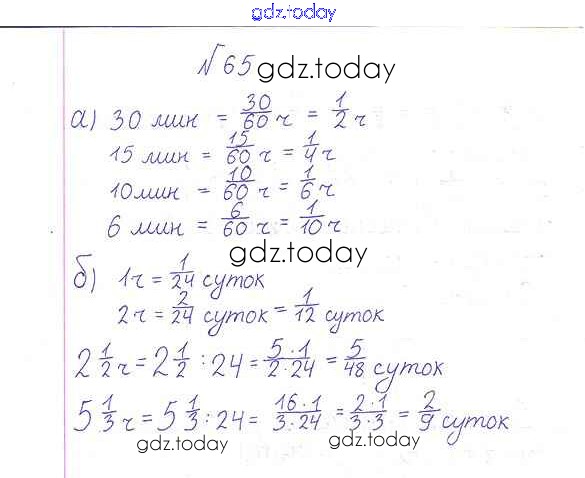 gdz.today
№65 gdz.today
а) 30 мин = 30/60 ч = 1/2 ч
15 мин = 15/60 ч = 1/4 ч
10 мин = 10/60 ч = 1/6 ч
6 мин = 6/60 ч = 1/10 ч
gdz.today
б) 1 ч = 1/24 суток
2 ч = 2/24 суток = 1/12 суток
2 1/2 ч = 2 1/2 : 24 = 5·1/2·24 = 5/48 суток
5 1/3 ч = 5 1/3 : 24 = 16·1/3·24 = 2·1/3·3 = 2/9 суток
gdz.today gdz.today